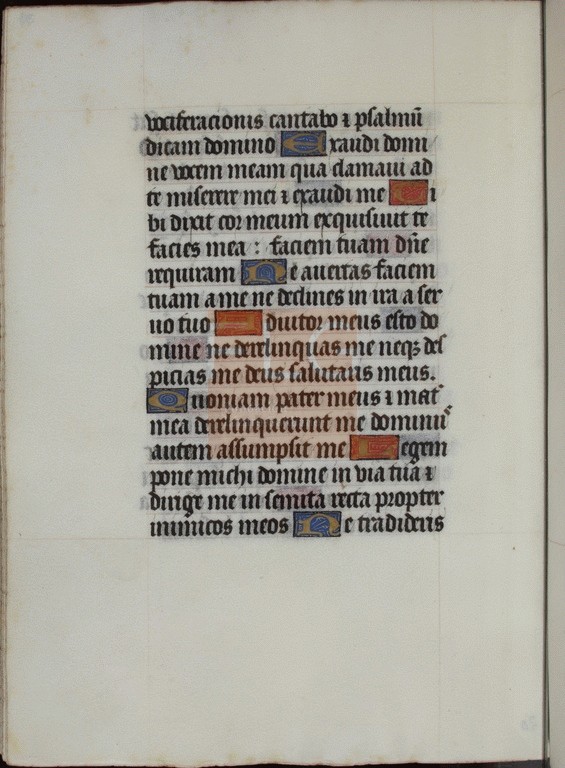 vociferacionis cantabo ⁊ psalmū
dicam domino Exaudi domi
ne vocem meam qua clamaui ad
te miserere mei ⁊ exaudi me Ti
bi dixit cor meum exquisiuit te
facies mea : faciem tuam dn̄e
requiram Ne auertas faciem
tuam a me ne declines in ira a ser
uo tuo Adiutor meus esto do
mine ne derelinquas me neqꝫ des
picias me deus salutaris meus.
Quoniam pater meus ⁊ mat᷑
mea derelinquerunt me dominu᷒
autem assumpsit me Legem
pone michi domine in via tua ⁊
dirige me in semita recta propter
inimicos meos Ne tradideris